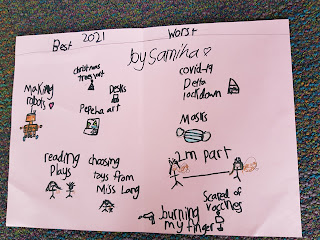 Best 2021 Worst
by Samiha
Making
robots
christmas
craft
Desks
Pepeha art
reading
plays
choosing
toys from
Miss Lang
covid-19
Delta
lockdown
Masks
2m part
Scared of
vaccines
burning
my finger